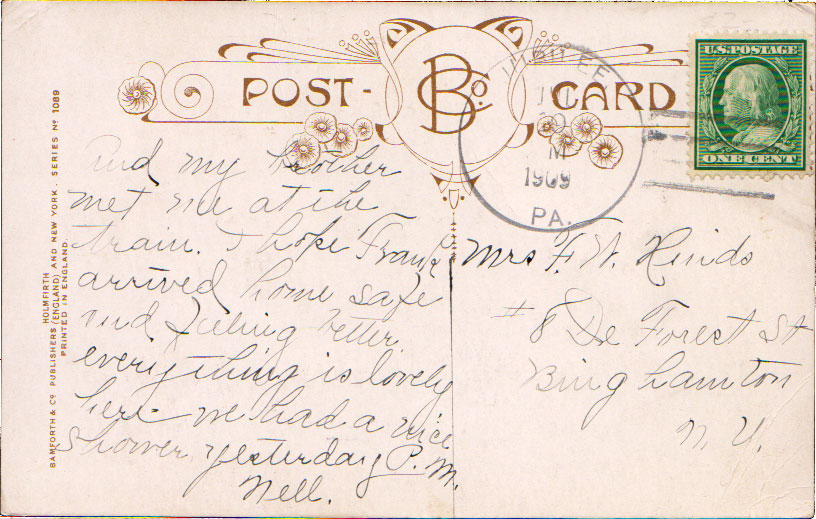 POST-
BCo.
CARD
U.S. POSTAGE
ONE CENT
1909
PA.
And my brother
met me at the
train. I hope Frank
arrived home safe
and feeling better
everything is lovely
here we had a nice
shower yesterday P.M.
Nell.
Mrs F. W. Hinds
# 8 De Forest St
Binghamton
N. Y.
BAMFORTH & Co. PUBLISHERS (ENGLAND) AND NEW YORK. SERIES No 1089
HOLMFIRTH
PRINTED IN ENGLAND.